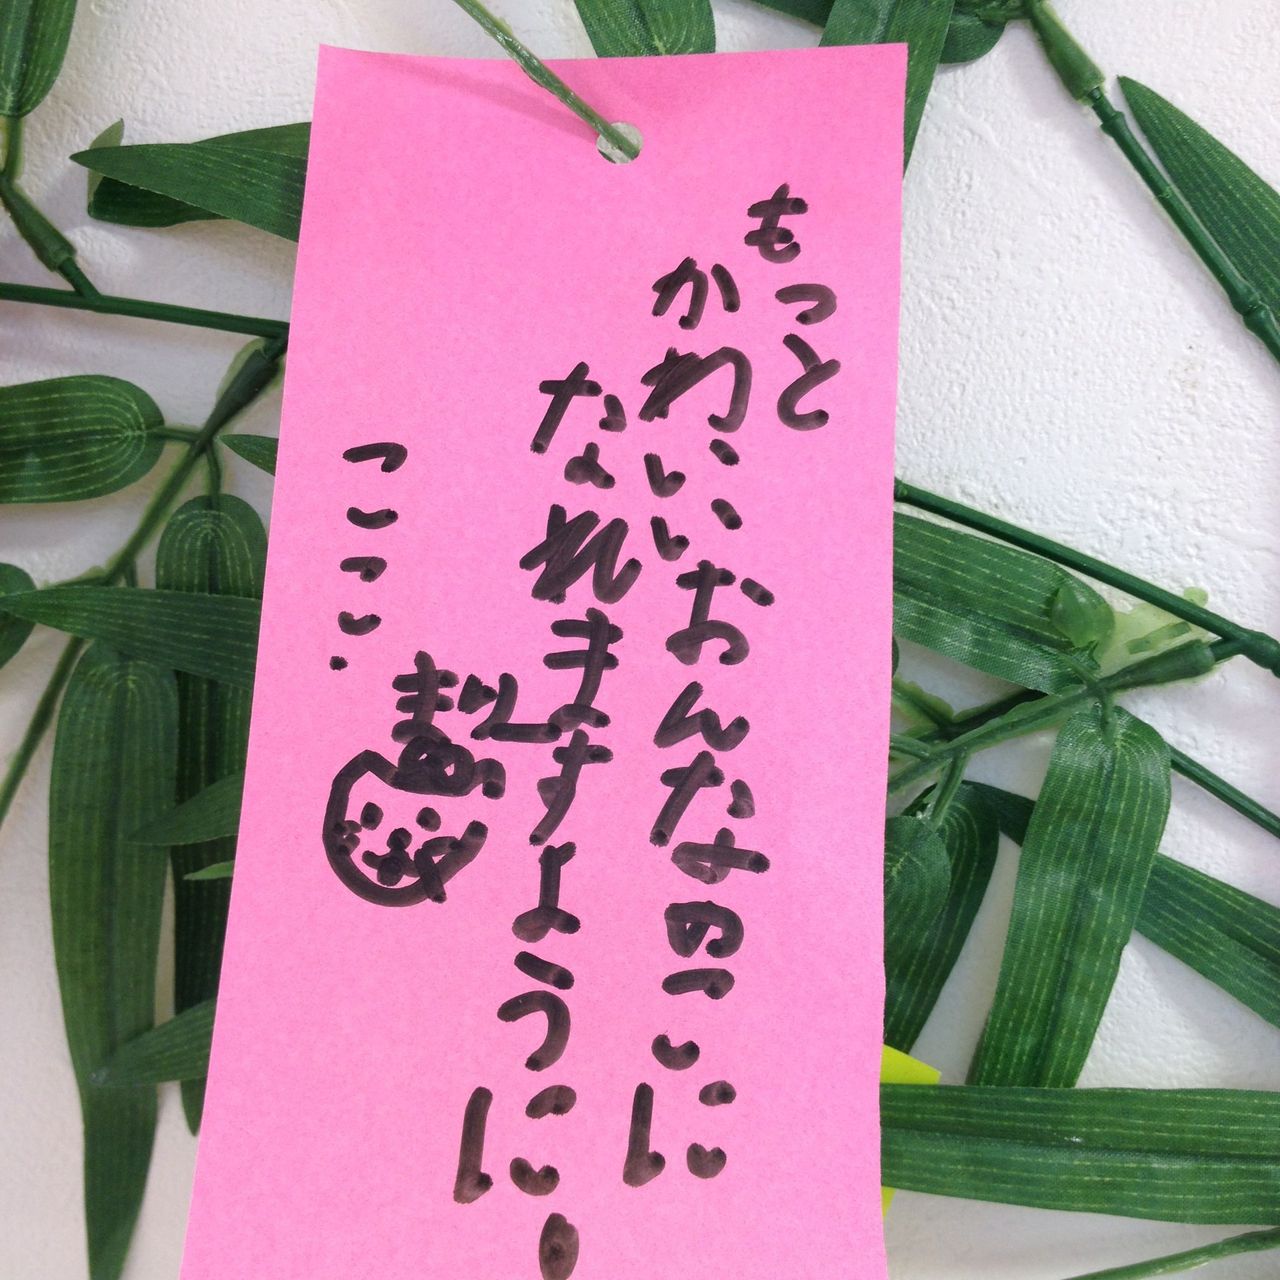 もっと
かわいいおんなのこに
なれますように!
ここ.